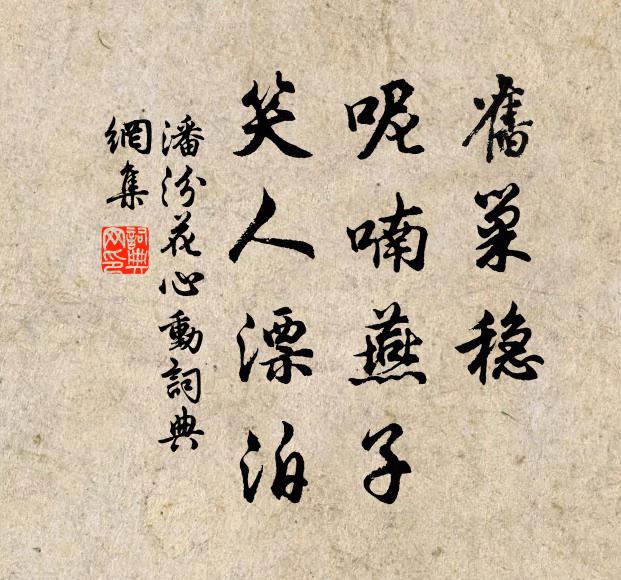 舊巢穩
呢喃燕子
笑人漂泊
潘汾花心動詞典
網集
詞典
网印